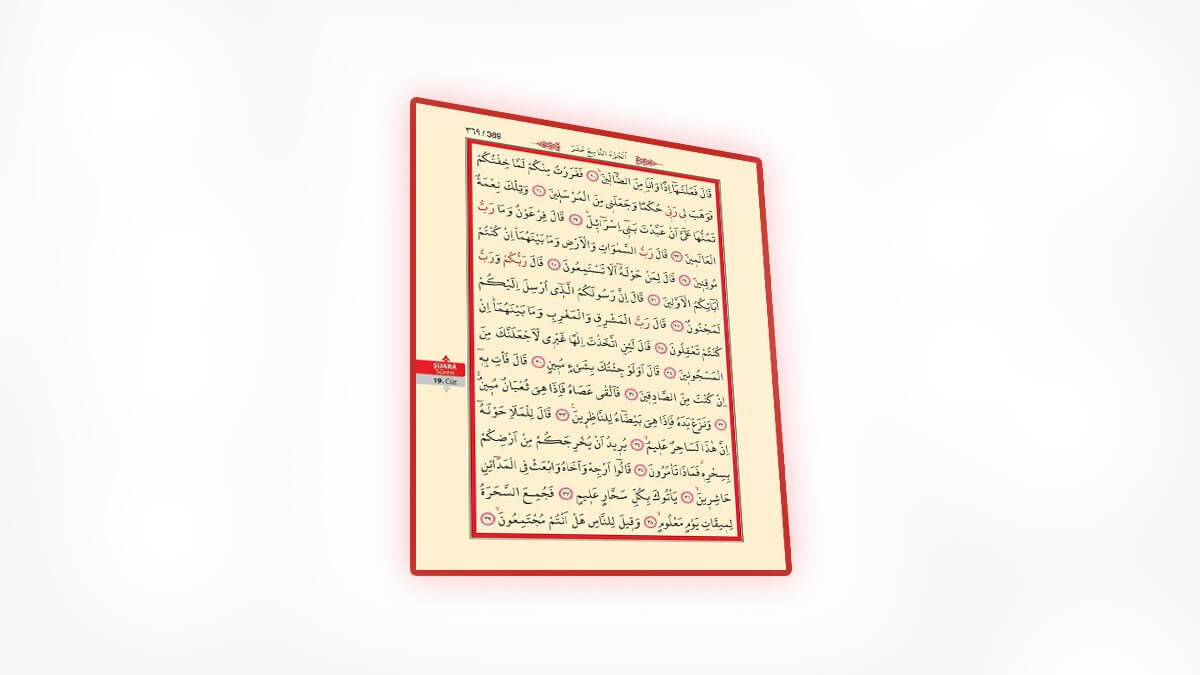 ٣٦٩ / 369
اَلْجُزْءُ التَّاسِعَ عَشَرَ
قَالَ فَعَلْتُهَٓا اِذًا وَاَنَا۬ مِنَ الضَّٓالّ۪ينَۜ ﴿٢٠﴾ فَفَرَرْتُ مِنْكُمْ لَمَّا خِفْتُكُمْ
فَوَهَبَ ل۪ي رَبّ۪ي حُكْمًا وَجَعَلَن۪ي مِنَ الْمُرْسَل۪ينَ ﴿٢١﴾ وَتِلْكَ نِعْمَةٌ
تَمُنُّهَا عَلَيَّ اَنْ عَبَّدْتَ بَن۪ٓي اِسْرَٓائ۪لَۜ ﴿٢٢﴾ قَالَ فِرْعَوْنُ وَمَا رَبُّ
الْعَالَم۪ينَ ﴿٢٣﴾ قَالَ رَبُّ السَّمٰوَاتِ وَالْاَرْضِ وَمَا بَيْنَهُمَاۜ اِنْ كُنْتُمْ
مُوقِن۪ينَ ﴿٢٤﴾ قَالَ لِمَنْ حَوْلَهُٓ اَلَا تَسْتَمِعُونَ ﴿٢٥﴾ قَالَ رَبُّكُمْ وَرَبُّ
اٰبَٓائِكُمُ الْاَوَّل۪ينَ ﴿٢٦﴾ قَالَ اِنَّ رَسُولَكُمُ الَّذ۪ٓي اُرْسِلَ اِلَيْكُمْ
لَمَجْنُونٌ ﴿٢٧﴾ قَالَ رَبُّ الْمَشْرِقِ وَالْمَغْرِبِ وَمَا بَيْنَهُمَاۜ اِنْ
كُنْتُمْ تَعْقِلُونَ ﴿٢٨﴾ قَالَ لَئِنِ اتَّخَذْتَ اِلٰهًا غَيْر۪ي لَاَجْعَلَنَّكَ مِنَ
الْمَسْجُون۪ينَ ﴿٢٩﴾ قَالَ اَوَلَوْ جِئْتُكَ بِشَيْءٍ مُب۪ينٍ ﴿٣٠﴾ قَالَ فَأْتِ بِه۪ٓ
اِنْ كُنْتَ مِنَ الصَّادِق۪ينَ ﴿٣١﴾ فَاَلْقٰى عَصَاهُ فَاِذَا هِيَ ثُعْبَانٌ مُب۪ينٌۚ
﴿٣٢﴾ وَنَزَعَ يَدَهُ فَاِذَا هِيَ بَيْضَٓاءُ لِلنَّاظِر۪ينَ۟ ﴿٣٣﴾ قَالَ لِلْمَلَأِ حَوْلَهُٓ
اِنَّ هٰذَا لَسَاحِرٌ عَل۪يمٌۙ ﴿٣٤﴾ يُر۪يدُ اَنْ يُخْرِجَكُمْ مِنْ اَرْضِكُمْ
بِسِحْرِه۪ۗ فَمَاذَا تَأْمُرُونَ ﴿٣٥﴾ قَالُٓوا اَرْجِهْ وَاَخَاهُ وَابْعَثْ فِي الْمَدَٓائِنِ
حَاشِر۪ينَۙ ﴿٣٦﴾ يَأْتُوكَ بِكُلِّ سَحَّارٍ عَل۪يمٍ ﴿٣٧﴾ فَجُمِعَ السَّحَرَةُ
لِم۪يقَاتِ يَوْمٍ مَعْلُومٍۙ ﴿٣٨﴾ وَق۪يلَ لِلنَّاسِ هَلْ اَنْتُمْ مُجْتَمِعُونَۙ ﴿٣٩﴾
ŞUARA
SÛRESİ
19. Cüz